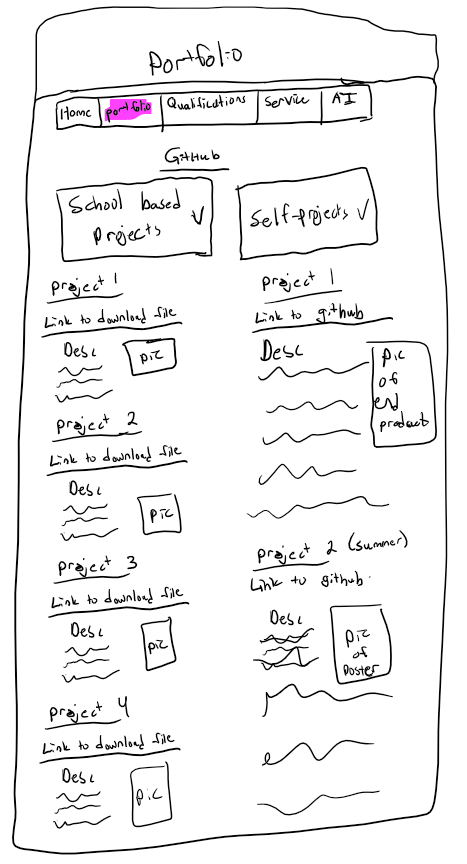 Portfolio
Home
portfolio
Qualifications
Service
AI
GitHub
School based
Projects
Self-projects
Project 1
Link to download file
Desc
pic
Project 2
Link to download file
Desc
pic
Project 3
Link to download file
Desc
pic
Project 4
Link to download file
Desc
pic
Project 1
Link to github
Desc
pic
of
end
product
Project 2 (summer)
Link to github
Desc
pic
of
Poster